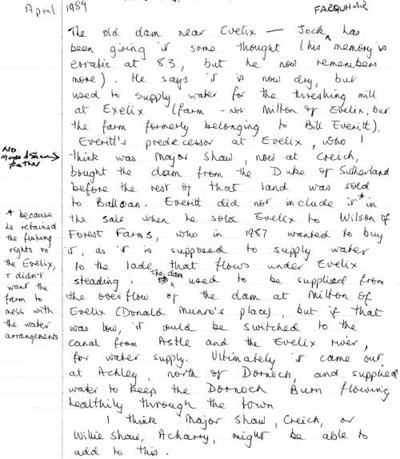 April 1989
FARQUHAR
The old dam near Evelix — Jock has
been giving it some thought (his memory is
erratic at 83, but he now remembers
more). He says it is now dry, but
used to supply water for the threshing mill
at Exelix (farm - not Milton of Evelix, but
the farm formerly belonging to Bill Everitt).
Everitt's predecessor at Evelix, who I
think was Major Shaw, now at Creich,
bought the dam from the Duke of Sutherland
before the rest of that land was sold
to Balloan. Everitt did not include it* in
the sale when he sold Evelix to Wilson of
Forest Farms, who in 1987 wanted to buy
it, as it is supposed to supply water
to the lade that flows under Evelix
steading. The dam used to be supplied from
the overflow of the dam at Milton of
Evelix (Donald Munro's place), but if that
was low, it could be switched to the
canal from Astle and the Evelix river,
for water supply. Ultimately it came out
at Achley, north of Dornoch, and supplied
water to keep the Dornoch Burn flowing
healthily through the town
I think Major Shaw, Creich, or
Willie Shaw, Acharry, might be able to
add to this.
NO
Major Shaw's
father
* because
he retained
the fishing
rights on
the Evelix,
& didn't
want the
farm to
mess with
the water
arrangements